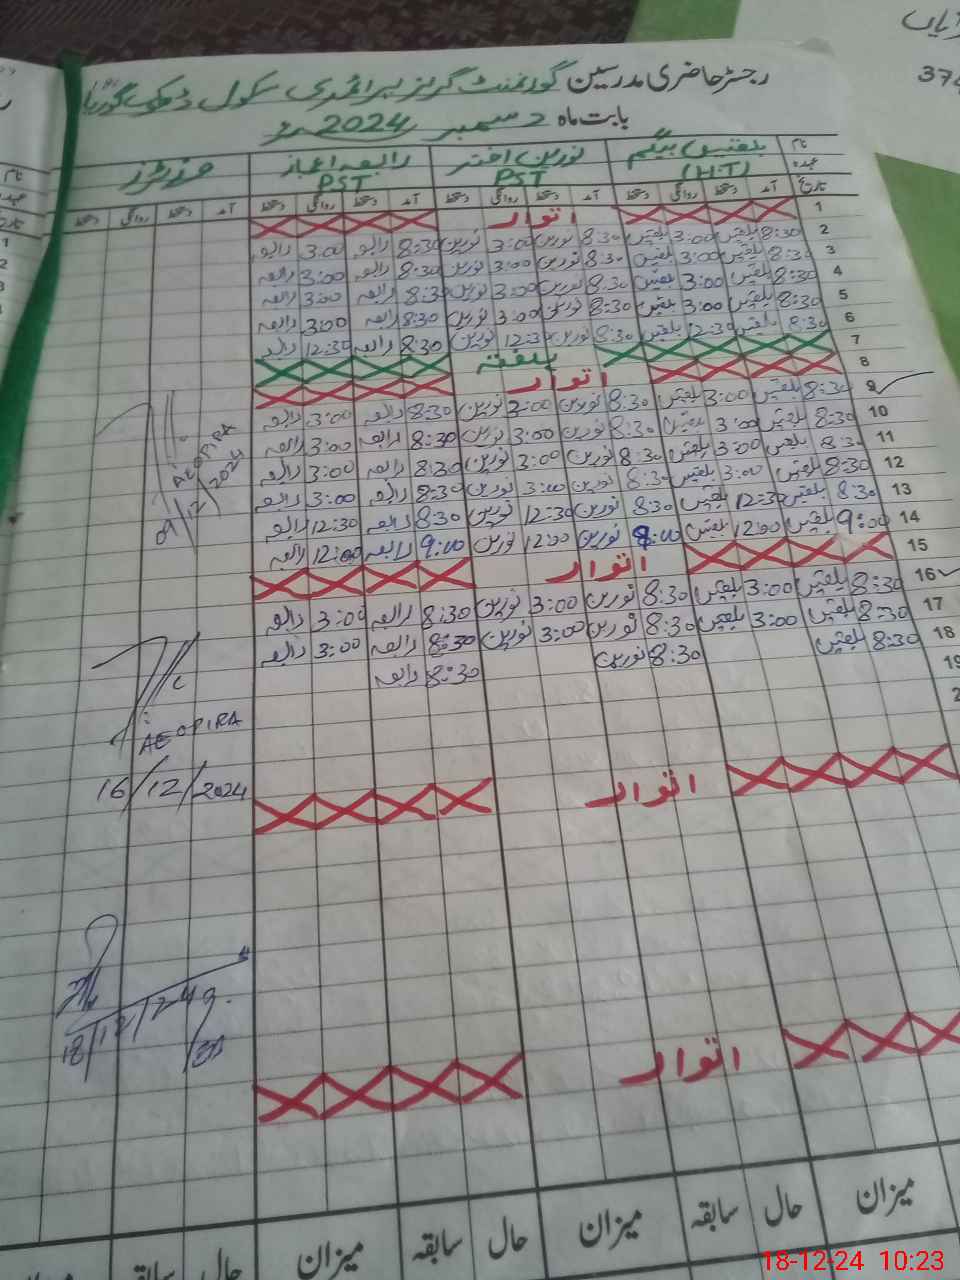 رجسٹر حاضری مدرسین گورنمنٹ گرلز پرائمری سکول ڈھوک گوریا
بابت ماہ دسمبر 2024ء
نام بلقیس بیگم نورین اختر رابعہ اعجاز
عہدہ (H.T) PST PST
تاریخ آمد دستخط روانگی دستخط آمد دستخط روانگی دستخط آمد دستخط روانگی دستخط آمد دستخط روانگی دستخط
1 اتوار
2 8:30 بلقیس 3:00 بلقیس 8:30 نورین 3:00 نورین 8:30 رابعہ 3:00 رابعہ
3 8:30 بلقیس 3:00 بلقیس 8:30 نورین 3:00 نورین 8:30 رابعہ 3:00 رابعہ
4 8:30 بلقیس 3:00 بلقیس 8:30 نورین 3:00 نورین 8:30 رابعہ 3:00 رابعہ
5 8:30 بلقیس 3:00 بلقیس 8:30 نورین 3:00 نورین 8:30 رابعہ 3:00 رابعہ
6 8:30 بلقیس 12:30 بلقیس 8:30 نورین 12:30 نورین 8:30 رابعہ 12:30 رابعہ
7 ہفتہ
8 اتوار
9 8:30 بلقیس 3:00 بلقیس 8:30 نورین 3:00 نورین 8:30 رابعہ 3:00 رابعہ
10 8:30 بلقیس 3:00 بلقیس 8:30 نورین 3:00 نورین 8:30 رابعہ 3:00 رابعہ
11 8:30 بلقیس 3:00 بلقیس 8:30 نورین 3:00 نورین 8:30 رابعہ 3:00 رابعہ
12 8:30 بلقیس 3:00 بلقیس 8:30 نورین 3:00 نورین 8:30 رابعہ 3:00 رابعہ
13 8:30 بلقیس 12:30 بلقیس 8:30 نورین 12:30 نورین 8:30 رابعہ 12:30 رابعہ
14 9:00 بلقیس 12:00 بلقیس 9:00 نورین 12:00 نورین 9:00 رابعہ 12:00 رابعہ
AEOPIRA
9/12/2024
15 اتوار
16 8:30 بلقیس 3:00 بلقیس 8:30 نورین 3:00 نورین 8:30 رابعہ 3:00 رابعہ
17 8:30 بلقیس 3:00 بلقیس 8:30 نورین 3:00 نورین 8:30 رابعہ 3:00 رابعہ
18 8:30 بلقیس 8:30 نورین 8:30 رابعہ
19
2
AEOPIRA
16/12/2024
اتوار
18/12/24
اتوار
میزان حال سابقہ میزان حال سابقہ میزان حال سابقہ
374
18-12-24 10:23